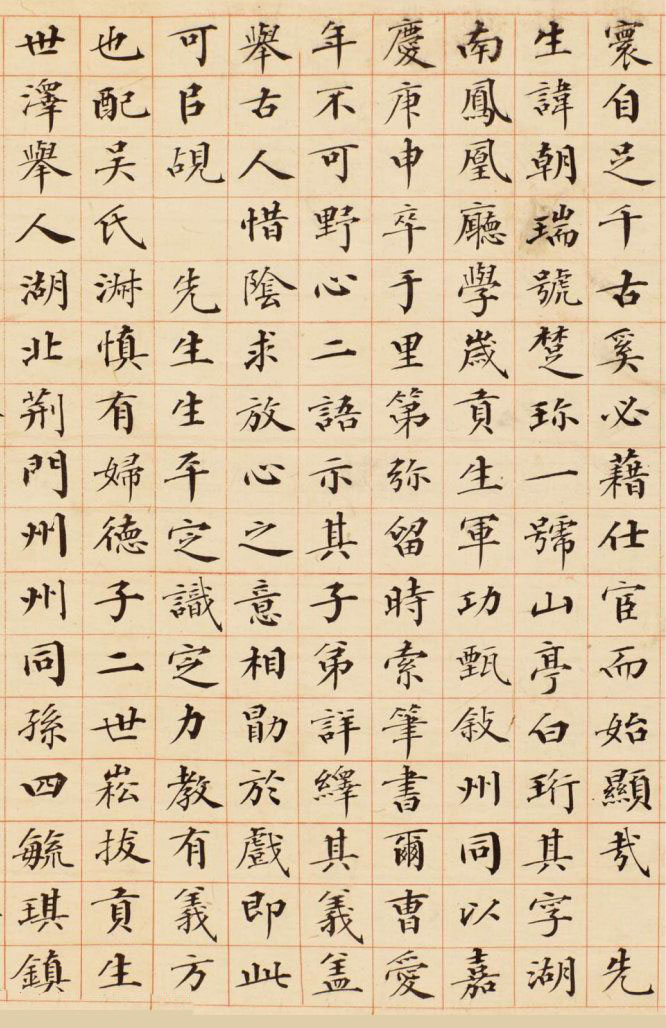 寰自足千古奚必藉仕宦而始顯哉 先
生諱朝瑞號楚珎一號山亭白珩其字湖
南鳳凰廳學歲貢生軍功甄敘州同以嘉
慶庚申卒于里第弥留時索筆書爾曹愛
年不可野心二語示其子弟詳繹其義盖
舉古人惜陰求放心之意相勖於戲即此
可㠯覘 先生生平定識定力教有義方
也配吴氏淑慎有婦德子二世崧拔貢生
世澤舉人湖北荆門州州同孫四毓琪鎮